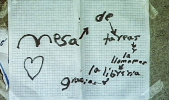 mesa de
tareas
y
la
llamamos
la librería
gracias